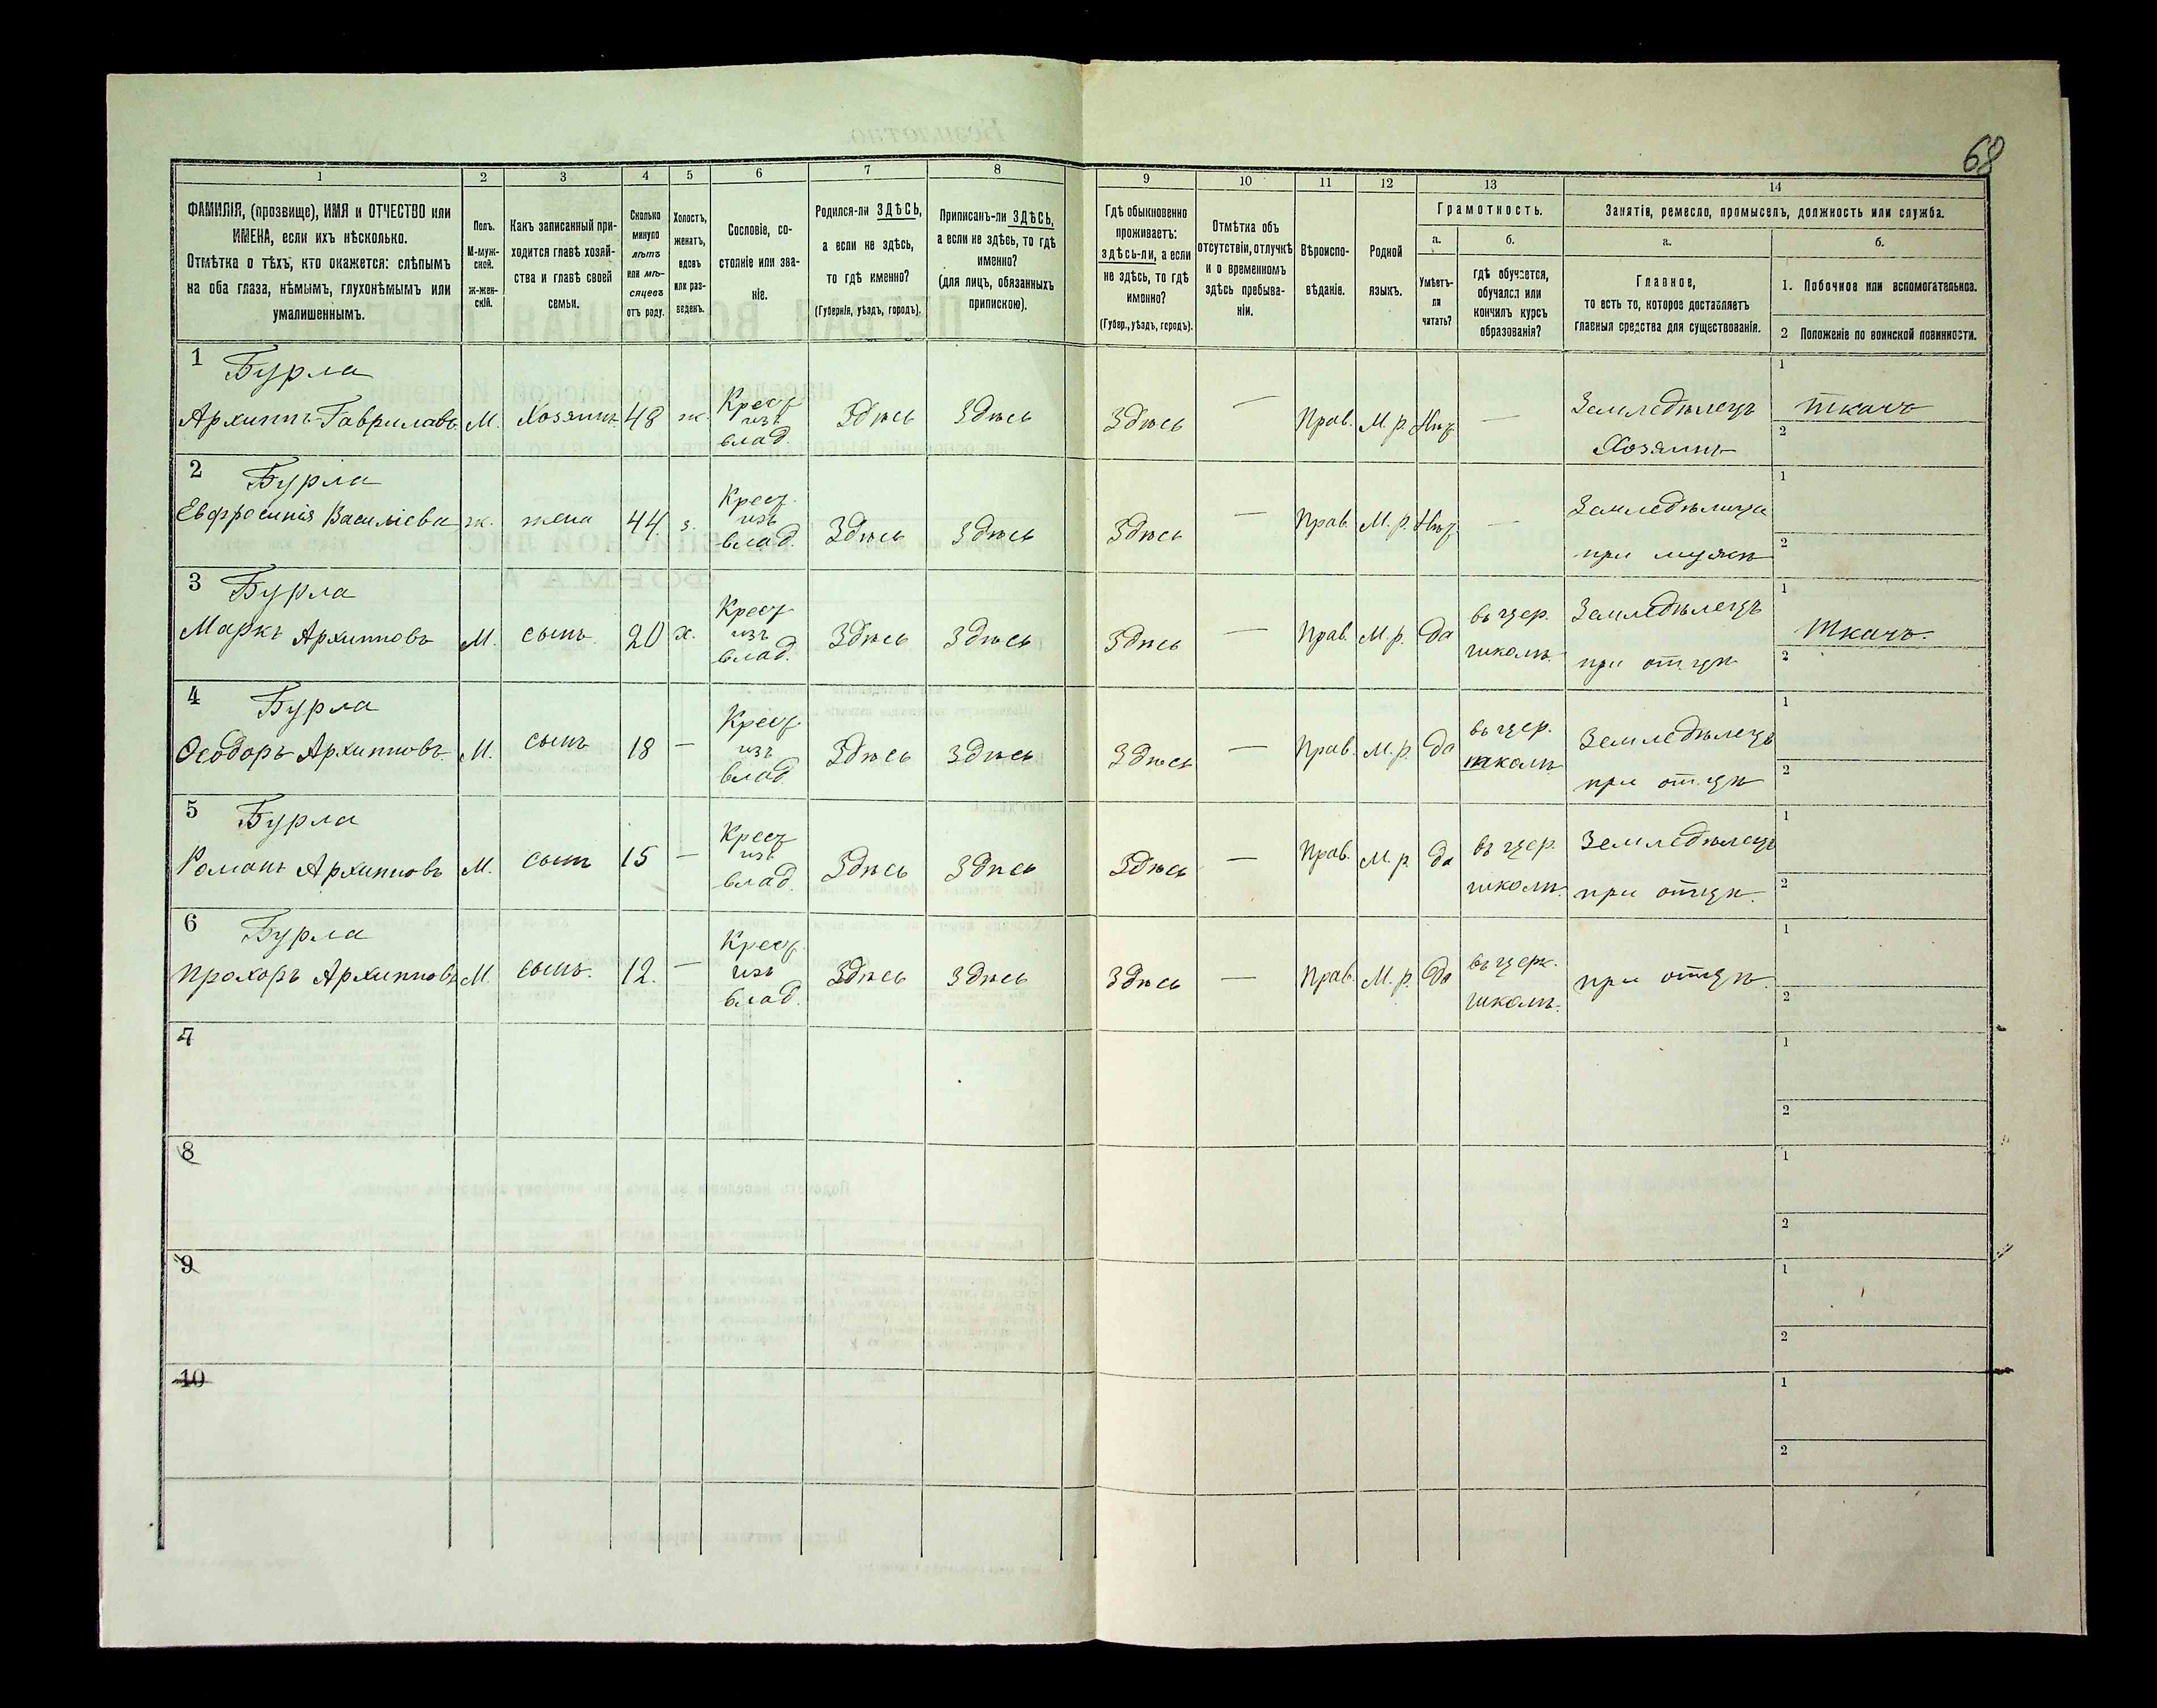 68
1 2 3 4 5 6 7 8 9 10 11 12 13 14
ФАМИЛІЯ, (прозвище), ИМЯ и ОТЧЕСТВО или
ИМЕНА, если ихъ нѣсколько.
Отмѣтка о тѣхъ, кто окажется: слѣпымъ
на оба глаза, нѣмымъ, глухонѣмымъ или
умалишеннымъ.
Полъ.
М-муж-
ской.
ж-жен-
скій.
Какъ записанный при-
ходится главѣ хозяй-
ства и главѣ своей
семьи.
Сколько
минуло
лѣтъ
или мѣ-
сяцевъ
отъ роду.
Холостъ,
женатъ,
вдовъ
или раз-
веденъ.
Сословіе, со-
стояніе или зва-
ніе.
Родился-ли ЗДѢСЬ,
а если не здѣсь,
то гдѣ именно?
(Губернія, уѣздъ, городъ).
Приписанъ-ли ЗДѢСЬ,
а если не здѣсь, то гдѣ
именно?
(для лицъ, обязанныхъ
припискою).
Гдѣ обыкновенно
проживаетъ:
ЗДѢСЬ-ли, а если
не здѣсь, то гдѣ
именно?
(Губер., уѣздъ, городъ).
Отмѣтка объ
отсутствіи, отлучкѣ
и о временномъ
здѣсь пребыва-
ніи.
Вѣроиспо-
вѣданіе.
Родной
языкъ.
Грамотность.
а.
Умѣетъ-
ли
читать?
б.
гдѣ обучается,
обучался или
кончилъ курсъ
образованія?
Занятіе, ремесло, промыселъ, должность или служба.
а.
Главное,
то есть то, которое доставляетъ
главныя средства для существованія.
б.
1. Побочное или вспомогательное.
2 Положеніе по воинской повинности.
1 Бурла
Архиппъ Гаврилавъ М. Хозяинъ 48 ж. Крест. изъ влад. Здѣсь Здѣсь Здѣсь — Прав. М. р. Нѣт — Земледѣлецъ Хозяинъ 1 ткачъ 2
2 Бурла
Евфросинія Василіева ж. жена 44 з. Крест. изъ влад. Здѣсь Здѣсь Здѣсь — Прав. М. р. Нѣт — Земледѣлица при мужѣ 1 2
3 Бурла
Маркъ Архипповъ М. сынъ 20 х. Крест. изъ влад. Здѣсь Здѣсь Здѣсь — Прав. М. р. да въ цер. школѣ Земледѣлецъ при отцѣ 1 Ткачъ. 2
4 Бурла
Ѳеодоръ Архипповъ. М. сынъ 18 — Крест. изъ влад. Здѣсь Здѣсь Здѣсь — Прав. М. р. да въ цер. школѣ Земледѣлецъ при отцѣ 1 2
5 Бурла
Романъ Архипповъ М. сынъ 15 — Крест. изъ влад. Здѣсь Здѣсь Здѣсь — Прав. М. р. да въ цер. школѣ Земледѣлецъ при отцѣ. 1 2
6 Бурла
Прохоръ Архипповъ М. сынъ. 12. — Крест. изъ влад. Здѣсь Здѣсь Здѣсь — Прав. М. р. да въ церк. школѣ. при отцѣ. 1 2
7 1 2
8 1 2
9 1 2
10 1 2